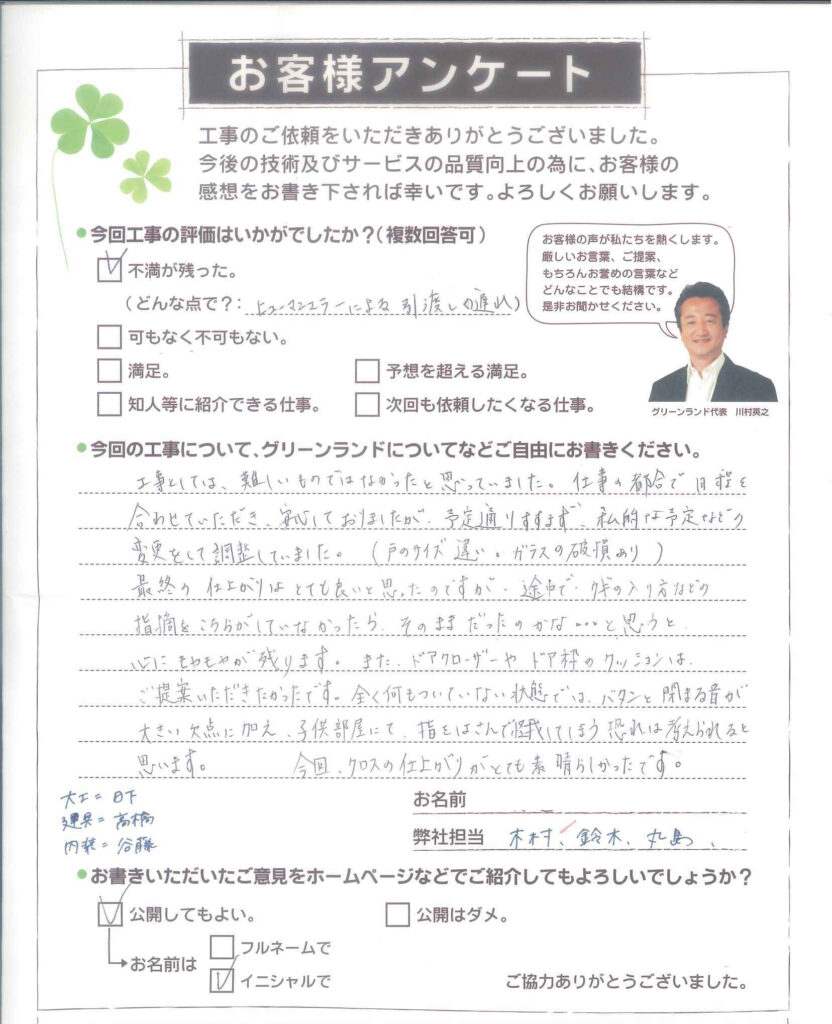 お客様アンケート
工事のご依頼をいただきありがとうございました。
今後の技術及びサービスの品質向上の為に、お客様の
感想をお書き下されば幸いです。よろしくお願いします。
今回工事の評価はいかがでしたか?(複数回答可)
不満が残った。
(どんな点で?: ヒューマンエラーによる引渡しの遅れ)
可もなく不可もない。
満足。
予想を超える満足。
知人等に紹介できる仕事。
次回も依頼したくなる仕事。
お客様の声が私たちを熱くします。
厳しいお言葉、ご提案、
もちろんお誉めの言葉など
どんなことでも結構です。
是非お聞かせください。
グリーンランド代表 川村英之
今回の工事について、グリーンランドについてなどご自由にお書きください。
工事としては、難しいものではなかったと思っていました。仕事の都合で日程を
合わせていただき、安心しておりましたが、予定通りすすまず、私的な予定などの
変更をして調整していました。(戸のサイズ違い。ガラスの破損あり)
最終の仕上がりはとても良いと思ったのですが、途中で、クギの入り方などの
指摘をこちらがしていなかったら、そのままだったのかな…と思うと、
心にもやもやが残ります。また、ドアクローザーやドア枠のクッションは、
ご提案いただきたかったです。全く何もついていない状態では、バタンと閉まる音が
大きい欠点に加え、子供部屋にて、指をはさんで怪我してしまう恐れは考えられると
思います。 今回、クロスの仕上がりがとても素晴らしかったです。
大工=日下
建具=高橋
内装=谷藤
お名前
弊社担当 木村、鈴木、丸島、
お書きいただいたご意見をホームページなどでご紹介してもよろしいでしょうか?
公開してもよい。
公開はダメ。
お名前は
フルネームで
イニシャルで
ご協力ありがとうございました。